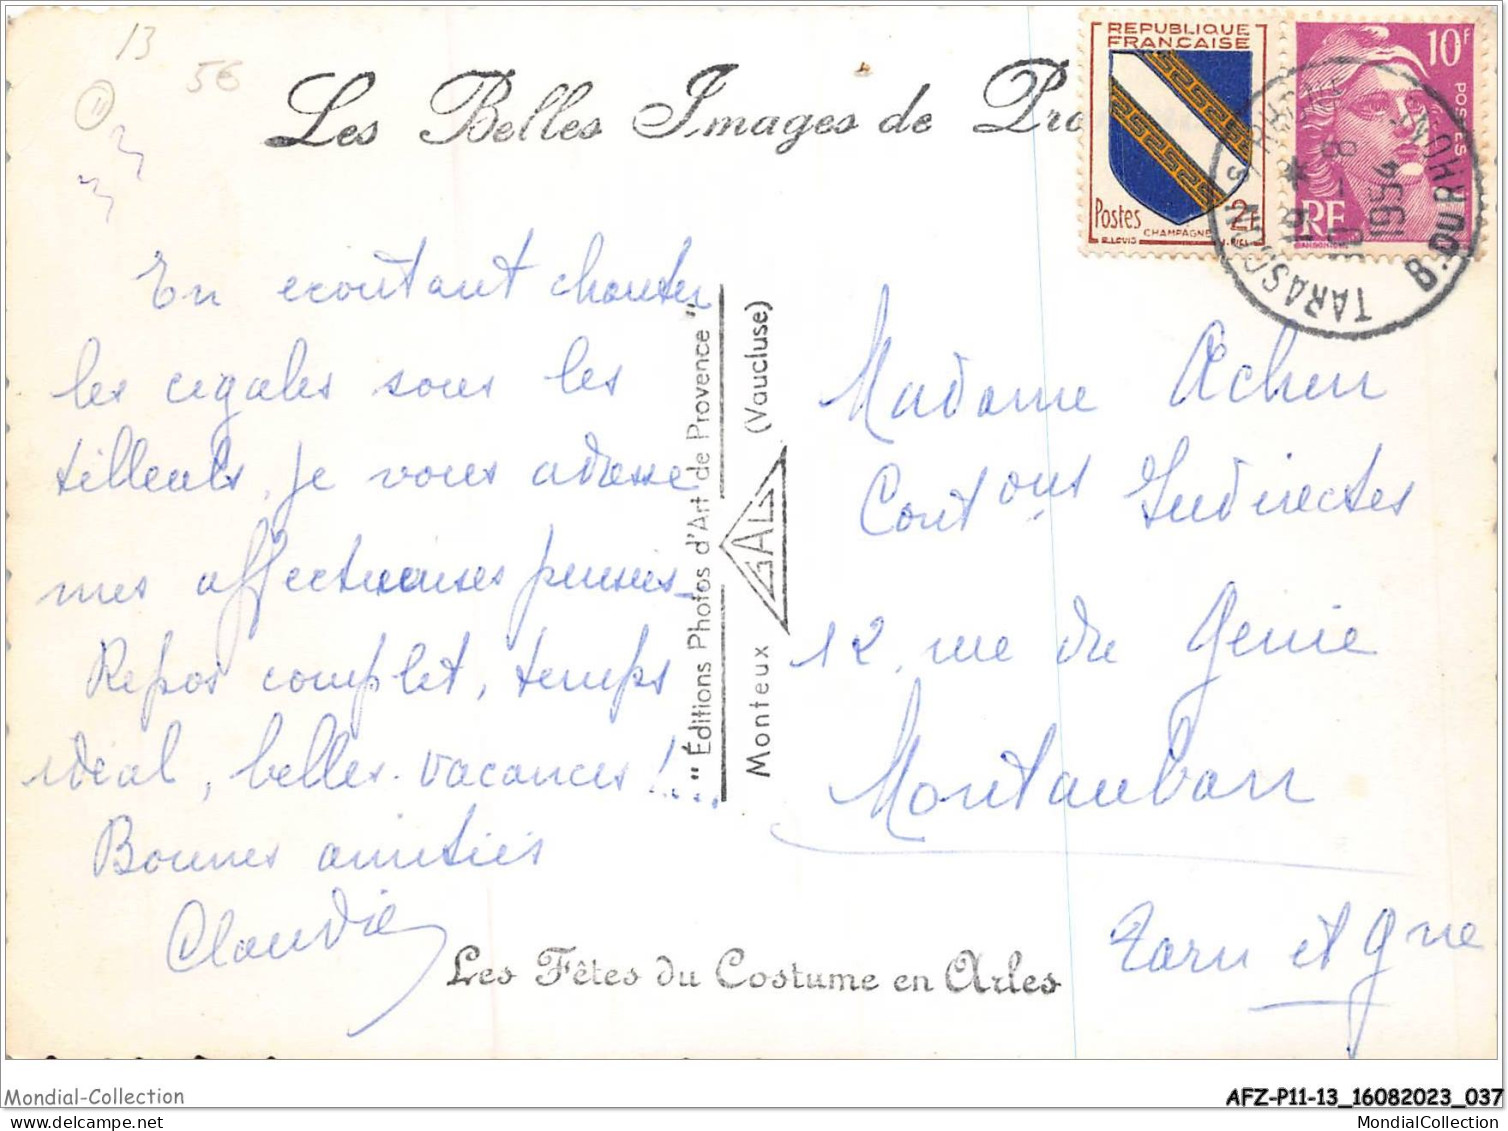 13
56
11
Les Belles Images de Pro
REPUBLIQUE
FRANÇAISE
Postes 2F
CHAMPAGNE
10F
POSTES
RF
TARASCON S RHONE
B. DU RHONE
1954
En ecoutant chanter
les cigales sous les
tilleuls, je vous adresse
mes affectueuses pensées
Repos complet, temps
idéal, belles vacances !...
Bonnes amitiés
Claudie
"Éditions Photos d'Art de Provence"
Monteux GAL (Vaucluse)
Madame Acher
Contons Indirectes
12, rue du Genie
Montauban
Tarn et Gne
Les Fêtes du Costume en Arles
Mondial-Collection
AFZ-P11-13_16082023_037
delcampe.net
MondialCollection